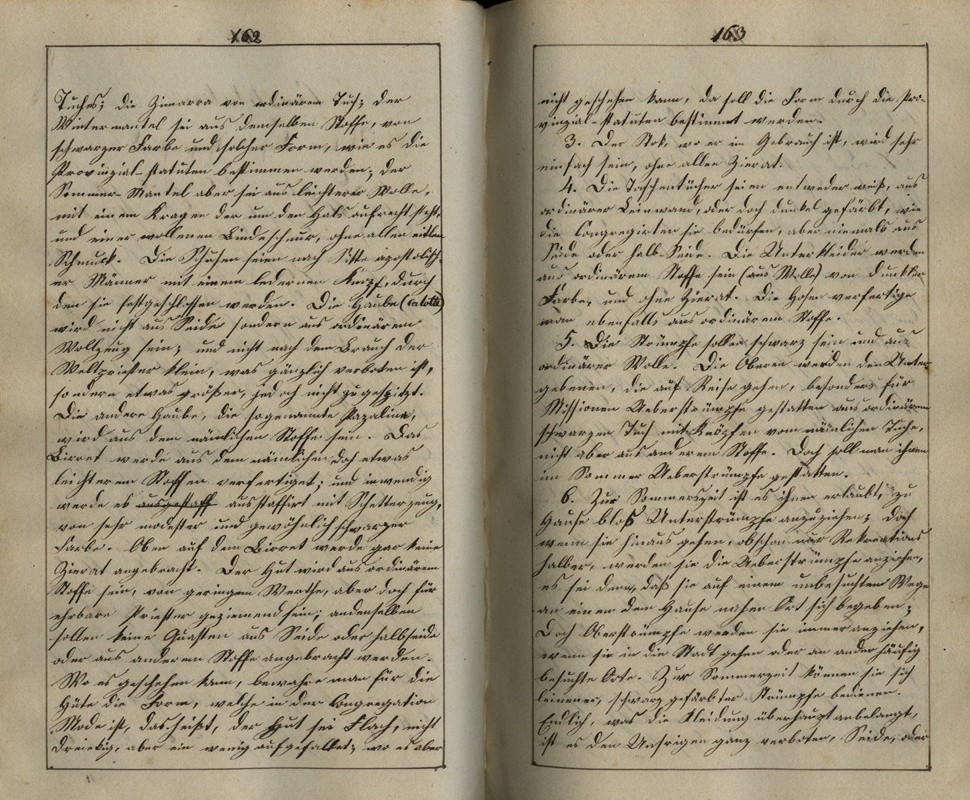 162
Tuches; die Zimarra von ordinärem Tuch; der
Wintermantel sei aus demselben Stoffe, von
schwarzer Farbe und solcher Form, wie es die
Provinzial-Statuten bestimmen werden; der
Sommer-Mantel aber sei aus leichterer Wolle,
mit einem Kragen der um den Hals aufrecht steht,
und einer wollenen Bindeschnur, ohne allen eitlen
Schmuck. Die Schuhe seien nach Sitte apostolisch-
er Männer mit einem ledernen Knopf, durch
den sie festgeschlossen werden. Die Haube (calotte)
wird nicht aus Seide sondern aus ordinärem
Wollzeug sein; und nicht nach dem Brauch der
Weltpriester klein, was gänzlich verboten ist,
sondern etwas größer, jedoch nicht zugespitzt.
Die andere Haube, die sogenannte Papalina,
wird aus dem nämlichen Stoffe sein. Das
Birret werde aus dem nämlichen doch etwas
leichteren Stoffen verfertiget; und inwendig
werde es ausgestaff ausstaffiert mit Schetterzeug,
von sehr modester und gewöhnlich schwarzer
Farbe. Oben auf dem Birret werde gar keine
Zierat angebracht. Der Hut wird aus ordinärem
Stoffe sein, von geringem Werthe, aber doch für
ehrbare Priester geziemend sein; an demselben
sollen keine Quasten aus Seide oder halbseide
oder aus anderem Stoffe angebracht werden.
Wo es geschehen kann, bewahre man für die
Hüte die Form, welche in der Congregation
Mode ist, das heißt, der Hut sei flach, nicht
dreieckig, aber ein wenig aufgefaltet; wo es aber
163
nicht geschehen kann, da soll die Form durch die Pro-
vinzial-Statuten bestimmt werden.
3. Der Stok, wo er im Gebrauch ist, wird sehr
einfach sein, ohne allen Zierat.
4. Die Taschentücher seien entweder weiß, aus
ordinärer Leinwand, oder doch dunkel gefärbt, wie
die Congregirten sie bedürfen, aber niemals aus
Seide oder halb-Seide. Die Unterkleider werden
aus ordinärem Stoffe sein (aus Wolle) von dunkler
Farbe, und ohne Zierat. Die Hosen verfertige
man ebenfalls aus ordinärem Stoffe.
5. Die Strümpfe sollen schwarz sein und aus
ordinärer Wolle. Die Oberen werden den Unter-
gebenen, die auf Reise gehen, besonders für
Missionen Ueberstrümpfe gestatten aus ordinärem
schwarzen Tuch mit Knöpfen vom nämlichen Tuche,
nicht aber aus anderem Stoffe. Doch soll man ihnen
im Sommer Ueberstrümpfe gestatten.
6. Zur Sommerszeit ist es ihnen erlaubt, zu
Hause bloß Unterstrümpfe anzuziehen; doch
wenn sie hinaus gehen, obschon nur Rekreations
halber, werden sie die Ueberstrümpfe anziehen,
es sei denn, daß sie auf einem unbesuchten Wege
an einen dem Hause nahen Ort sich begeben;
doch Oberstrümpfe werden sie immer anziehen,
wenn sie in die Stadt gehen oder an andere häufig
besuchte Orte. Zur Sommerzeit können sie sich
leinener, schwarz gefärbter Strümpfe bedienen.
Endlich, was die Kleidung überhaupt anbelangt,
ist es den Unsrigen ganz verboten, Seide, oder